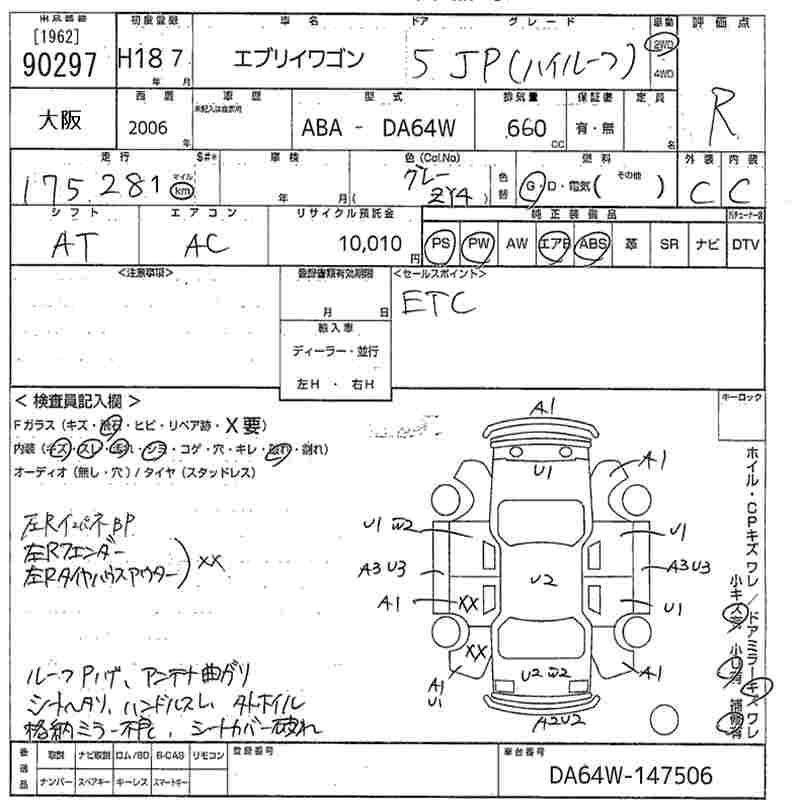 [1962]
90297
初度登録
H18 7
年 月
車名
エブリイワゴン
ドア
5
グレード
JP(ハイルーフ)
駆動
2WD
4WD
評価点
R
大阪
西暦
2006
年
車歴
未記入は自家用
型式
ABA - DA64W
排気量
660
cc
保証書
有・無
定員
名
走行
175,281
マイル
km
S#*
車検
年 月(
色(Col.No)
グレー
ZY4)
色替
燃料
G・D・電気(その他)
外装
C
内装
C
シフト
AT
エアコン
AC
リサイクル預託金
10,010
円
純正装備品
PS PW AW エアB ABS 革 SR ナビ DTV
<注意事項>
登録書類有効期限
月 日
輸入車
ディーラー・並行
左H ・ 右H
<セールスポイント>
ETC
キーロック
<検査員記入欄>
Fガラス(キズ・飛石・ヒビ・リペア跡・X要)
内装(キズ・スレ・汚れ・シミ・コゲ・穴・キレ・破れ・割れ)
オーディオ(無し・穴)/タイヤ(スタッドレス)
左Rインパネ BP
左Rフェンダー
左Rタイヤハウスアウター
XX
ルーフPハゲ、アンテナ曲ガリ
シートヘタリ、ハンドルスレ、タトホイル
格納ミラー不良、シートカバー破れ
A1
U1
A1
U1 W2
U1
A3 U3
A3 U3
A1
XX
U2
U1
XX
A1
U1
U2 W2
A1
A2 U2
ホイル・CPキズワレ/ドアミラーキズワレ
小キズ有 小U有 補修有
後送品
取説 ナビ取説 ロム/SD B-CAS リモコン
ナンバー スペアキー キーレス スマートキー
登録番号
車台番号
DA64W-147506